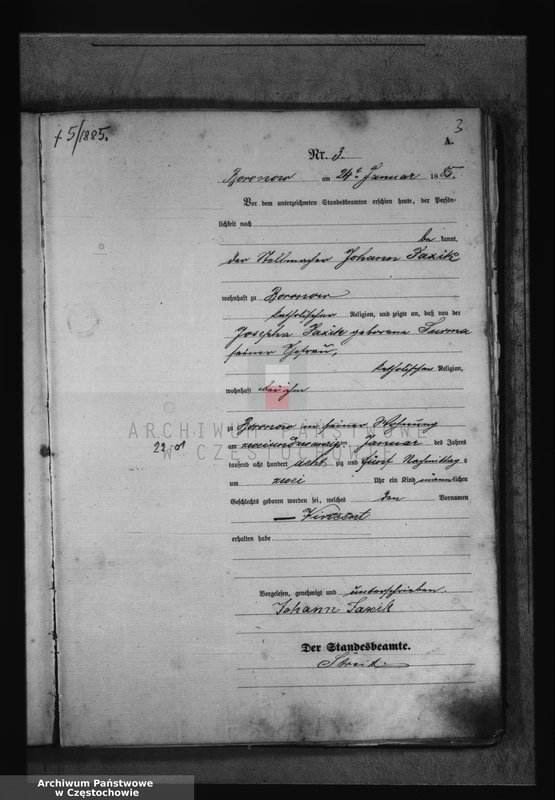 +5/1885.
3
A.
Nr. 3.
Boronow am 24ten Januar 1885.
Vor dem unterzeichneten Standesbeamten erschien heute, der Persön-
lichkeit nach
be kannt,
der Stellmacher Johann
wohnhaft zu Boronow
katholischer Religion, und zeigte an, daß von der
Josepha geborene Surma
seiner Ehefrau,
katholischer Religion,
wohnhaft bei ihm
zu Boronow in seiner Wohnung
am zweiundzwanzigsten Januar des Jahres
22/01
tausend acht hundert acht zig und fünf Nachmittags
um zwei Uhr ein Kind männlichen
Geschlechts geboren worden sei, welches den Vornamen
— Vincent
erhalten habe
Vorgelesen, genehmigt und unterschrieben.
Johann
Der Standesbeamte.
ARCHIWUM PAŃSTWOWE
W CZĘSTOCHOWIE
Archiwum Państwowe
w Częstochowie